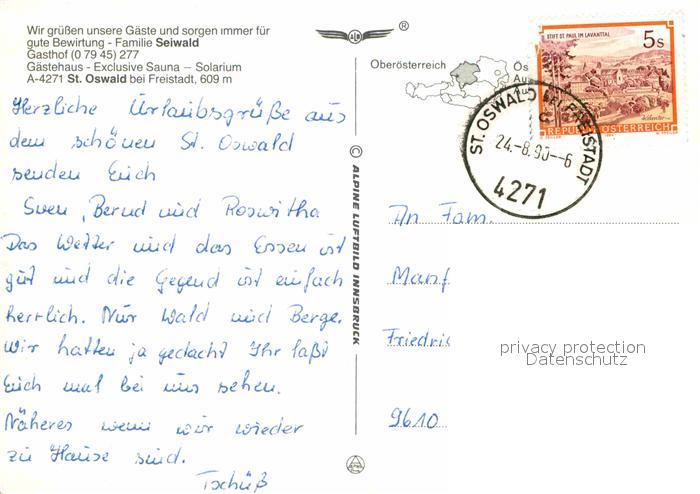 Wir grüßen unsere Gäste und sorgen immer für
gute Bewirtung - Familie Seiwald
Gasthof (0 79 45) 277
Gästehaus - Exclusive Sauna – Solarium
A-4271 St. Oswald bei Freistadt, 609 m
Herzliche Urlaubsgrüße aus
dem schönen St. Oswald
senden Euch
Sven, Bernd und Roswitha
Das Wetter und das Essen ist
gut und die Gegend ist einfach
herrlich. Nur Wald und Berge.
Wir hatten ja gedacht Ihr laßt
Euch mal bei uns sehen.
Näheres wenn wir wieder
zu Hause sind.
Tschüß
© ALPINE LUFTBILD INNSBRUCK
®
Oberösterreich
Ös
STIFT ST. PAUL IM LAVANTTAL
5s
REPUBLIK ÖSTERREICH
ST. OSWALD BEI FREISTADT
24.-8.90--6
4271
An Fam.
Manf
Friedric
9610
privacy protection
Datenschutz